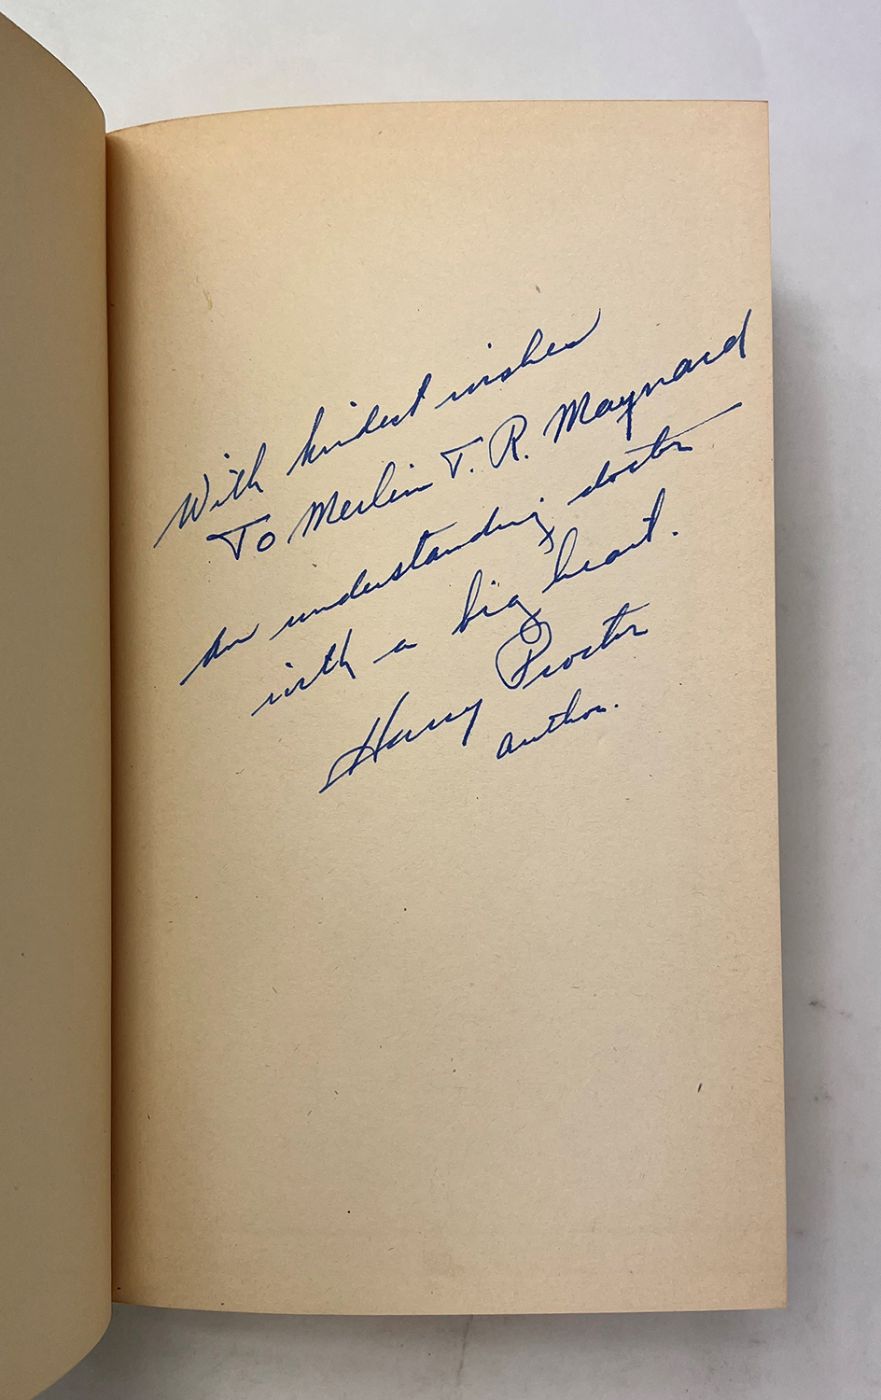 With kindest wishes
To Merlin T. R. Maynard
An understanding doctor
with a big heart.
Harry Procter
author.